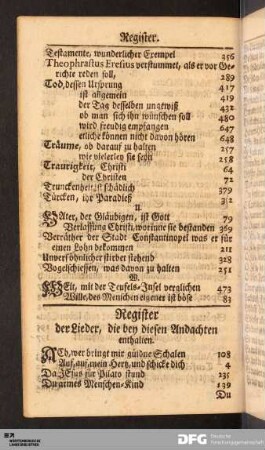 Register.
Testamente, wunderlicher Exempel 356
Theophrastus Eresius verstummet, als er vor Ge-
richte reden soll, 289
Tod, dessen Ursprung 417
ist allgemein 419
der Tag desselben ungewiß 432
ob man sich ihn wünschen soll 480
wird freudig empfangen 647
etliche können nicht davon hören 648
Träume, ob darauf zu halten 257
wie vielerley sie seyn 258
Traurigkeit, Christi 64
der Christen 72
Trunckenheit ist schädlich 379
Türcken, ihr Paradieß 312
U.
VAter, der Gläubigen, ist Gott 79
Verlassung Christi, worinne sie bestanden 369
Verräther der Stadt Constantinopel was er für
einen Lohn bekommen 211
Unversöhnlicher stirbet stehend 328
Vogelschiessen, was davon zu halten 251
W.
WElt, mit der Teufels-Insel verglichen 473
Wille, des Menschen eigener ist böse 83
Register
der Lieder, die bey diesen Andachten
enthalten.
ACh, wer bringt mir güldne Schalen 108
Auf, auf, mein Hertz, und schicke dich 4
Da JEsus für Pilato stund 235
Du armes Menschen-Kind 139
Du
DFG